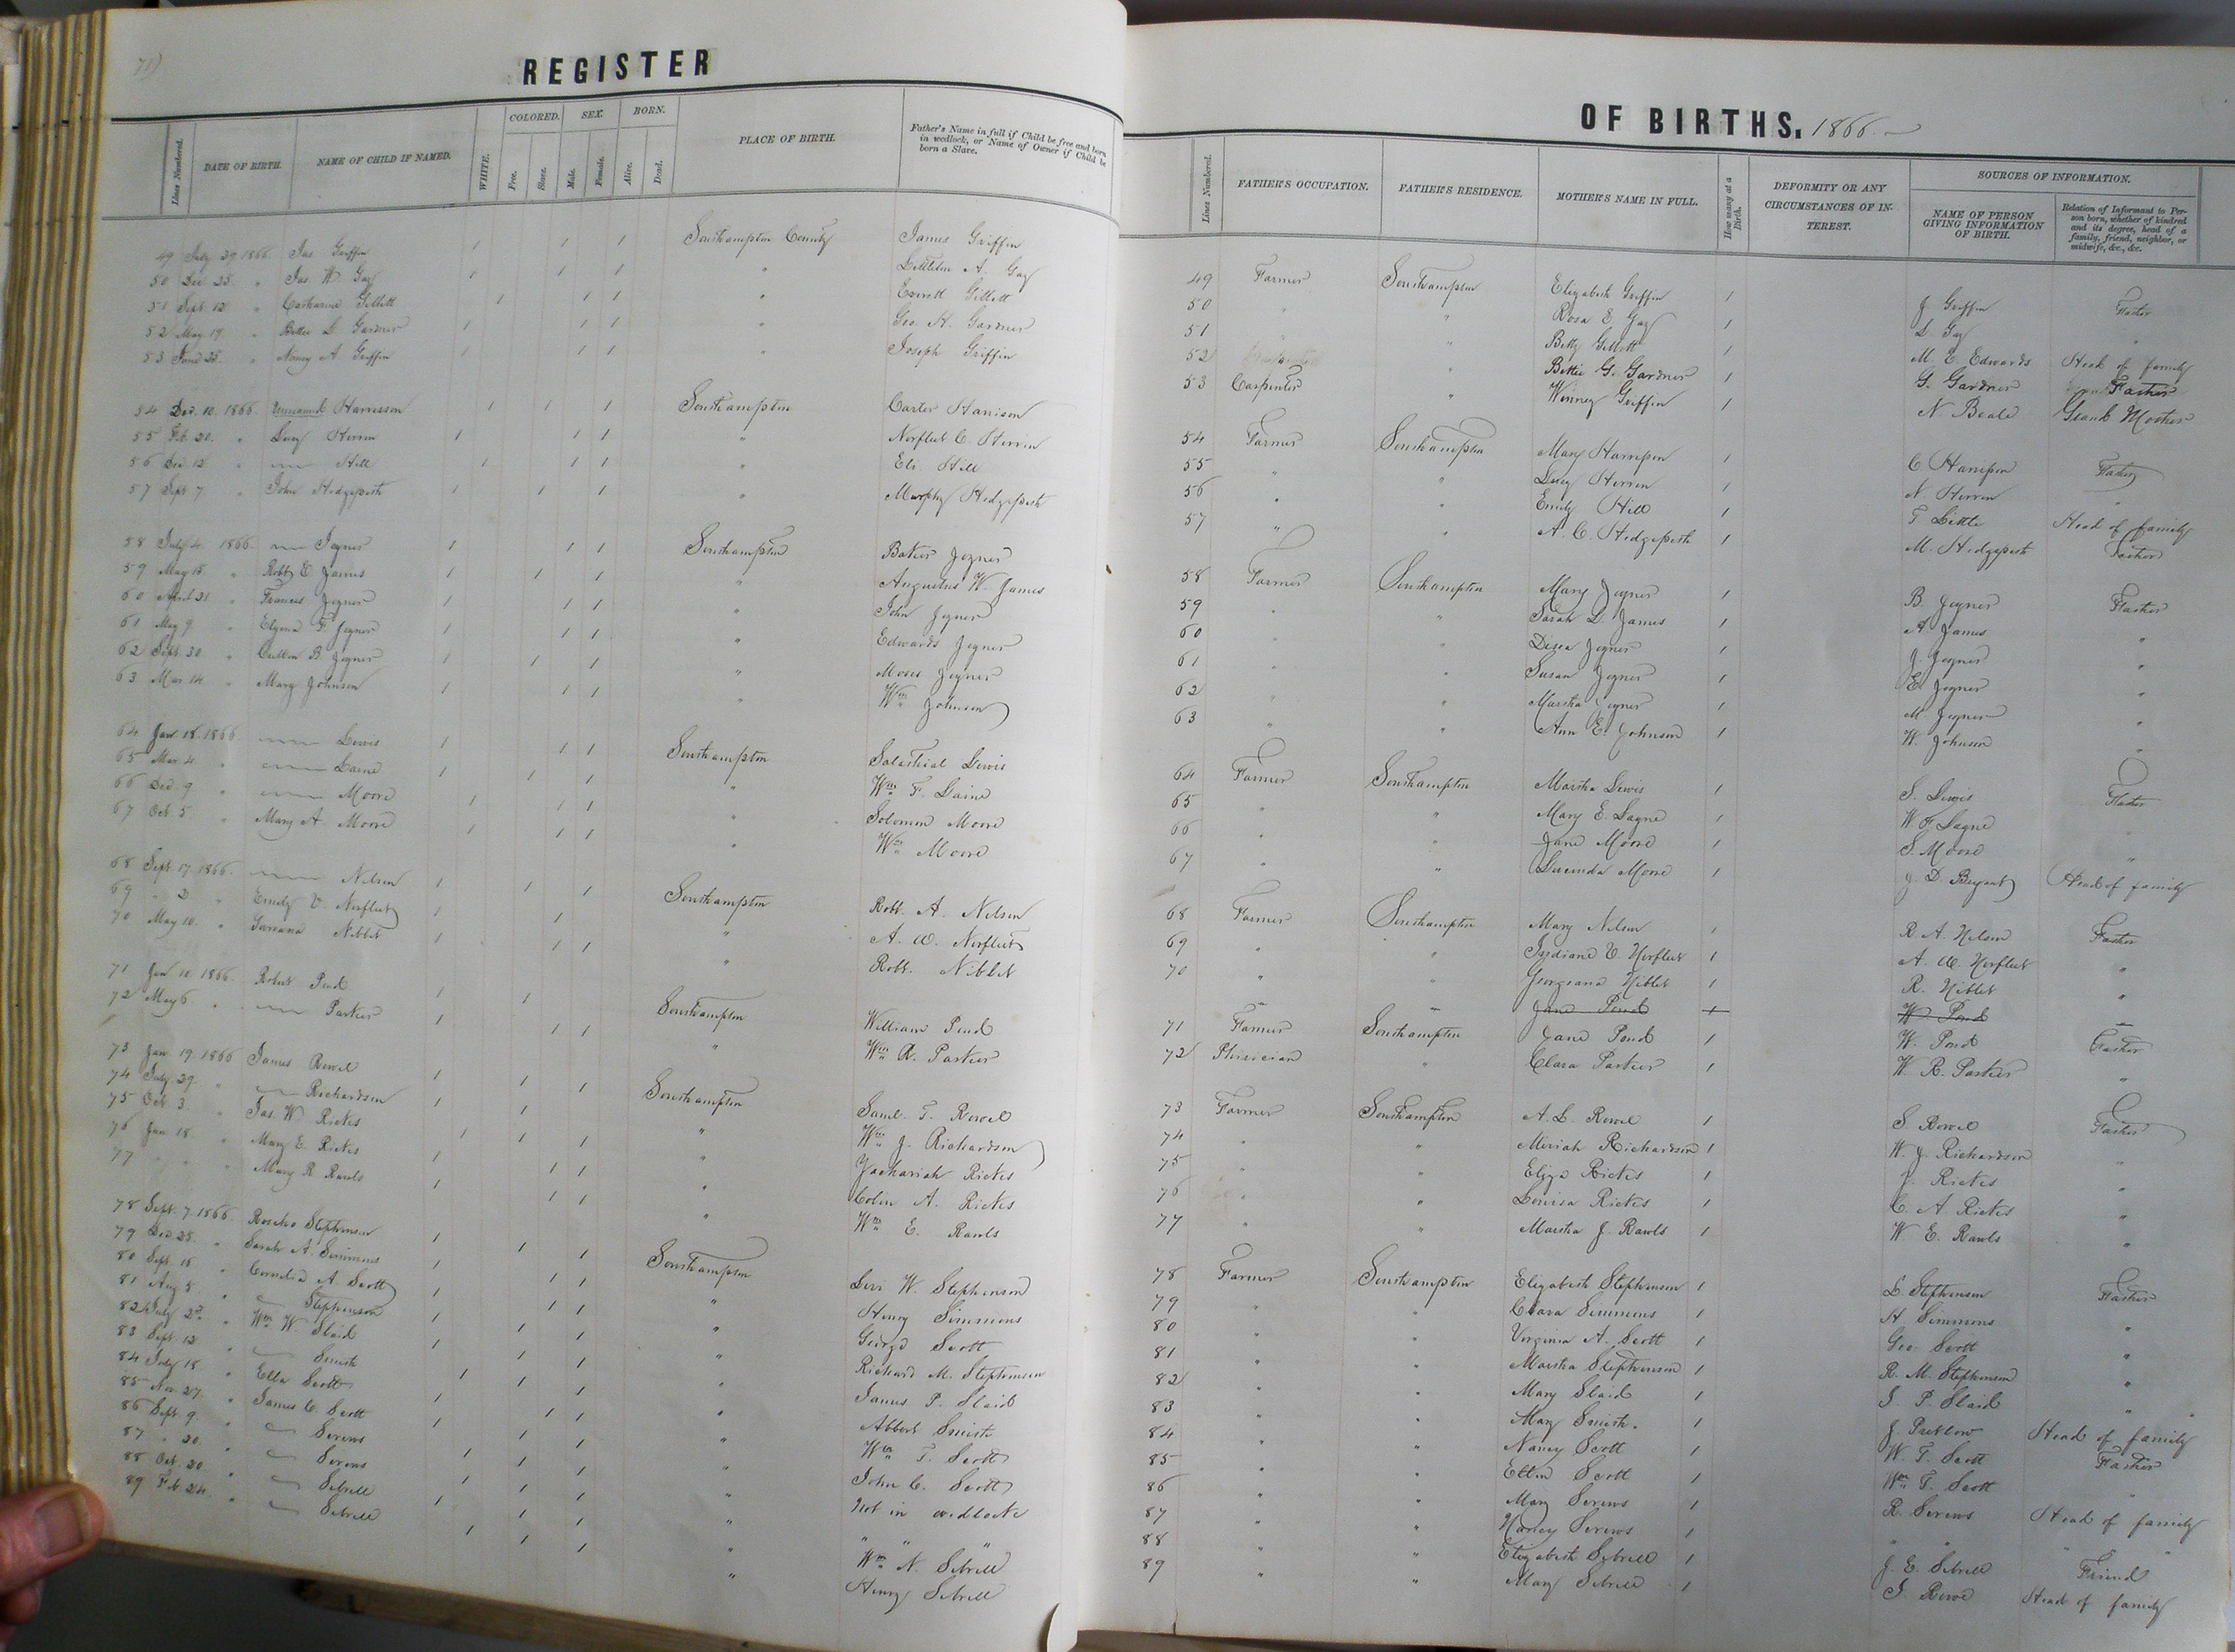 REGISTER
Lines Numbered. DATE OF BIRTH. NAME OF CHILD IF NAMED. WHITE. COLORED. Free. Slave. SEX. Male. Female. BORN. Alive. Dead. PLACE OF BIRTH. Father's Name in full if Child be free and born in wedlock, or Name of Owner if Child be born a Slave.
49 July 29 1866. Jas. Griffin / / / Southampton County James Griffin
50 Dec 25. " Jas. W. Gay / / / " Littleton A. Gay
51 Sept. 12 " Catharine Gillett / / / " Everett Gillett
52 May 19 " Bettie L Gardner / / / " Geo. H. Gardner
53 June 25. " Nancy A Griffin / / / " Joseph Griffin
54 Dec. 10. 1866. Unnamed Harrison / / / Southampton Carter Harrison
55 Feb. 20. " Lucy Herrin / / / " Norfleet C. Herrin
56 Dec. 12 " — Hill / / / " Eli Hill
57 Sept 7. " John Hedgepeth / / / " Murphy Hedgepeth
58 July 4. 1866. — Joyner / / / Southampton Joyner
59 May 15. " Robt. E James / / / " Augustus W. James
60 April 21 " Frances Joyner / / / " John Joyner
61 May 9. " F. Joyner / / / " Edwards Joyner
62 Sept. 30. " Cullen B. Joyner / / / " Moses Joyner
63 Mar. 14. " Mary Johnson / / / " Wm Johnson
64 Jan. 18. 1866. — Lewis / / / Southampton Lewis
65 Mar 4. " — Laine / / / " Wm F. Laine
66 Dec. 9. " — Moore / / / " Solomon Moore
67 Oct. 5. " Mary A. Moore / / / " Wm Moore
68 Sept. 17. 1866. — Nelson / / / Southampton Robt. A. Nelson
69 " 2 " Emily V. Norfleet / / " A. W. Norfleet
70 May 10. " Niblet / / / " Robt. Niblet
71 Jan 10. 1866. Robert Pond / / Southampton William Pond
72 May 6. " — Parker / / / " Wm R. Parker
73 Jan. 19. 1866 James Rowel / / / Southampton Saml. T. Rowel
74 July 29. " — Richardson / / " Wm J. Richardson
75 Oct 3. " Jas. W. Ricks / / / " Zachariah Ricks
76 Jan 18. " Mary E. Ricks / / / " Colin A. Ricks
77 " " " Mary R Rawls / / " Wm E. Rawls
78 Sept. 7. 1866. Stephenson / / / Southampton Levi W. Stephenson
79 Dec 25. " Sarah A. Simmons / / / " Henry Simmons
80 Sept. 15 " Cornelia A. Scott / / / " George Scott
81 Aug 5. " — Stephenson / / / " Richard M. Stephenson
82 July 2d " Wm W. Slaid / / / " James P. Slaid
83 Sept. 12 " — Smith / / / " Abbert Smith
84 July 18 " Ella Scott / / / " Wm T. Scott
85 Nov. 27. " James C. Scott / / / " John C. Scott
86 Sept. 9. " — Screws / / / " Not in wedlock
87 " 20. " — Screws / / / " " " "
88 Oct. 20 " — Sebrell / / / " Wm N. Sebrell
89 Feb. 24 " — Sebrell / / / " Henry Sebrell
OF BIRTHS. 1866.
Lines Numbered. FATHER'S OCCUPATION. FATHER'S RESIDENCE. MOTHER'S NAME IN FULL. How many at a Birth. DEFORMITY OR ANY CIRCUMSTANCES OF INTEREST. SOURCES OF INFORMATION. NAME OF PERSON GIVING INFORMATION OF BIRTH. Relation of Informant to Person born, whether of kindred and its degree, head of a family, friend, neighbor, or midwife, &c., &c.
49 Farmer Southampton Elizabeth Griffin / J Griffin Father
50 " " Rosa E. Gay / L Gay "
51 " " Betty Gillett / M. E. Edwards Head of family
52 " Bettie G. Gardner / G. Gardner Father
53 Carpenter " Winney Griffin / N. Beale Grand Mother
54 Farmer Southampton Mary Harrison / C. Harrison Father
55 " " Lucy Herrin / N Herrin "
56 " " Emily Hill / T Little Head of family
57 " " A. C. Hedgepeth / M. Hedgepeth Father
58 Farmer Southampton Mary Joyner / B. Joyner Father
59 " " Sarah L. James / A. James "
60 " " Joyner / J. Joyner "
61 " " Susan Joyner / E Joyner "
62 " " Martha Joyner / M. Joyner "
63 " " Ann E. Johnson / W. Johnson "
64 Farmer Southampton Martha Lewis / S. Lewis Father
65 " " Mary E. Layne / W. F. Layne "
66 " " Jane Moore / S. Moore "
67 " " Lucinda Moore / J. D. Bryant Head of family
68 Farmer Southampton Mary Nelson / R. A. Nelson Father
69 " " Indiana V. Norfleet / A. W. Norfleet "
70 " " Georgeana Niblet / R. Niblet "
Jane Pond / W Pond
71 Farmer Southampton Jane Pond / W. Pond Father
72 Phisician " Clara Parker / W. R. Parker "
73 Farmer Southampton A. L. Rowel / S. Rowel Father
74 " " Meriah Richardson / W. J. Richardson "
75 " " Eliza Ricks / Z. Ricks "
76 " " Louisa Ricks / C. A. Ricks "
77 " " Martha J. Rawls / W. E. Rawls "
78 Farmer Southampton Elizabeth Stephenson / L. Stephenson Father
79 " " Clara Simmons / H. Simmons "
80 " " Virginia A. Scott / Geo. Scott "
81 " " Martha Stephenson / R. M. Stephenson "
82 " " Mary Slaid / J. P. Slaid "
83 " " Mary Smith. / J. Pretlow Head of family
84 " " Nancy Scott / W. T. Scott Father
85 " " Ellen Scott / Wm T. Scott "
86 " " Mary Screws / R. Screws Head of family
87 " " Nancy Screws / " " "
88 " " Elizabeth Sebrell / J. E. Sebrell Friend
89 " " Mary Sebrell / J. Rowe Head of family